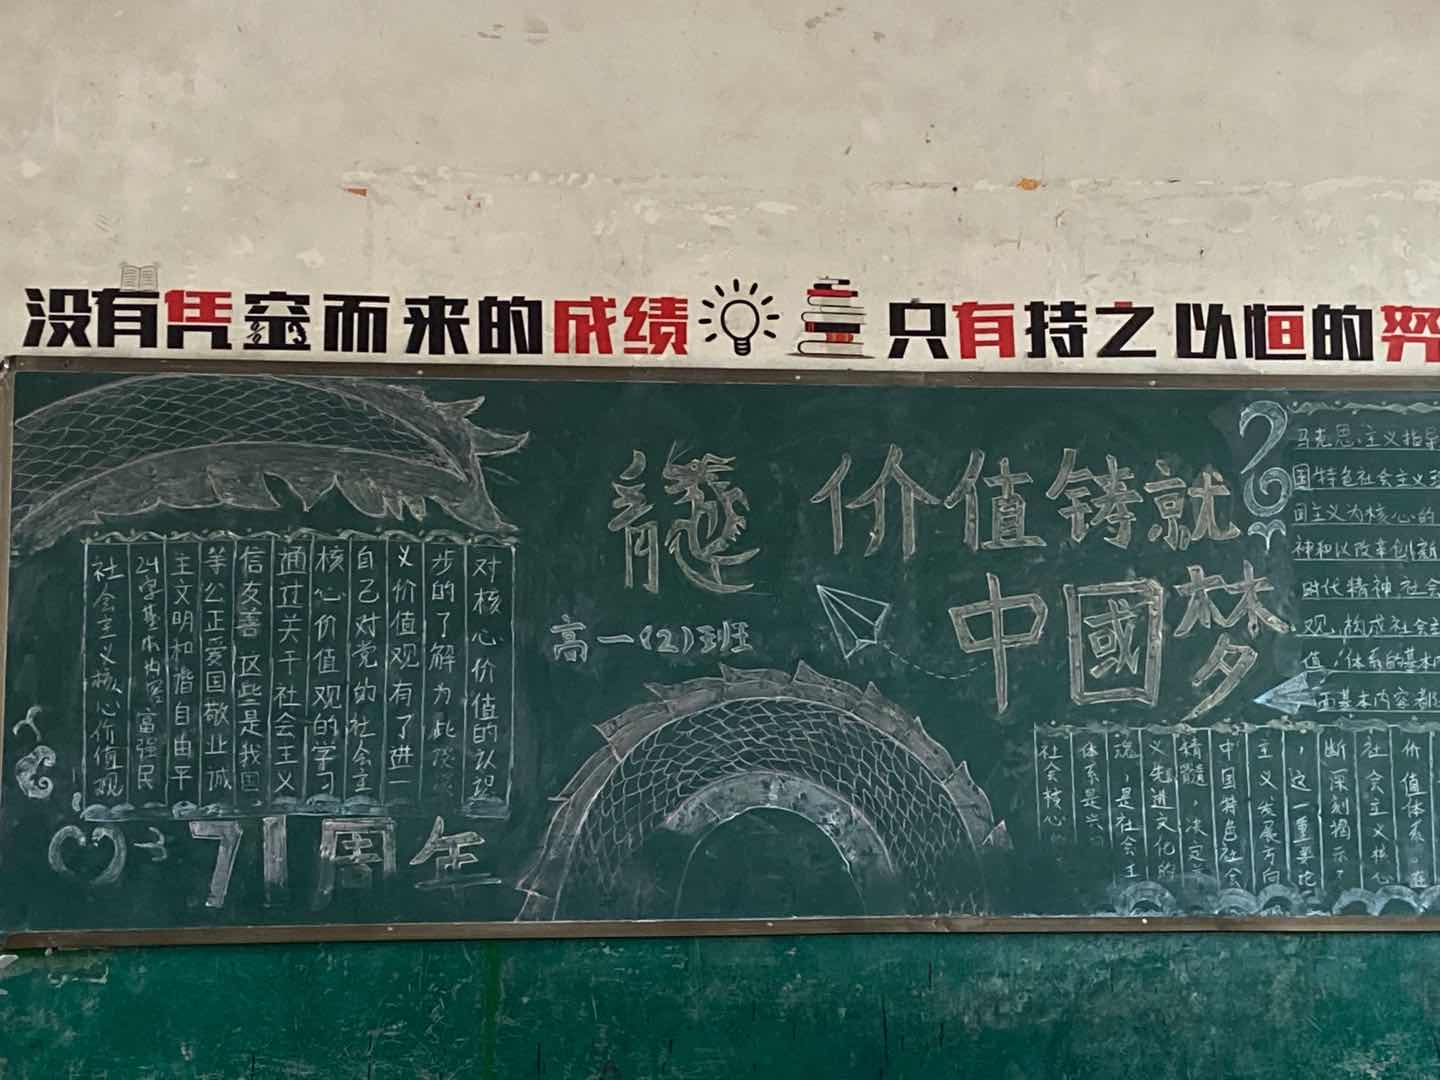 没有凭空而来的成绩
只有持之以恒的努
价值铸就
中國梦
高一(2)班
对核心价值的认识
步的了解为此
义价值观有了进一
自己对党的社会主
核心价值观的学习
通过关于社会主义
信友善 这些是我国
等公正爱国敬业诚
主文明和谐自由平
24字基本内容 富强民
社会主义核心价值观
71周年
马克思主义指导
国特色社会主义
国主义为核心的
神和以改革创新
时代精神社会
观,构成社会主
值,体系的基本
面基本内容都
价值体系,在
社会主义核心
断深刻揭示了
,这一重要论
主义发展方向
中国特色社会
精髓,决定
义先进文化的
魂,是社会主
体系是兴
社会核心